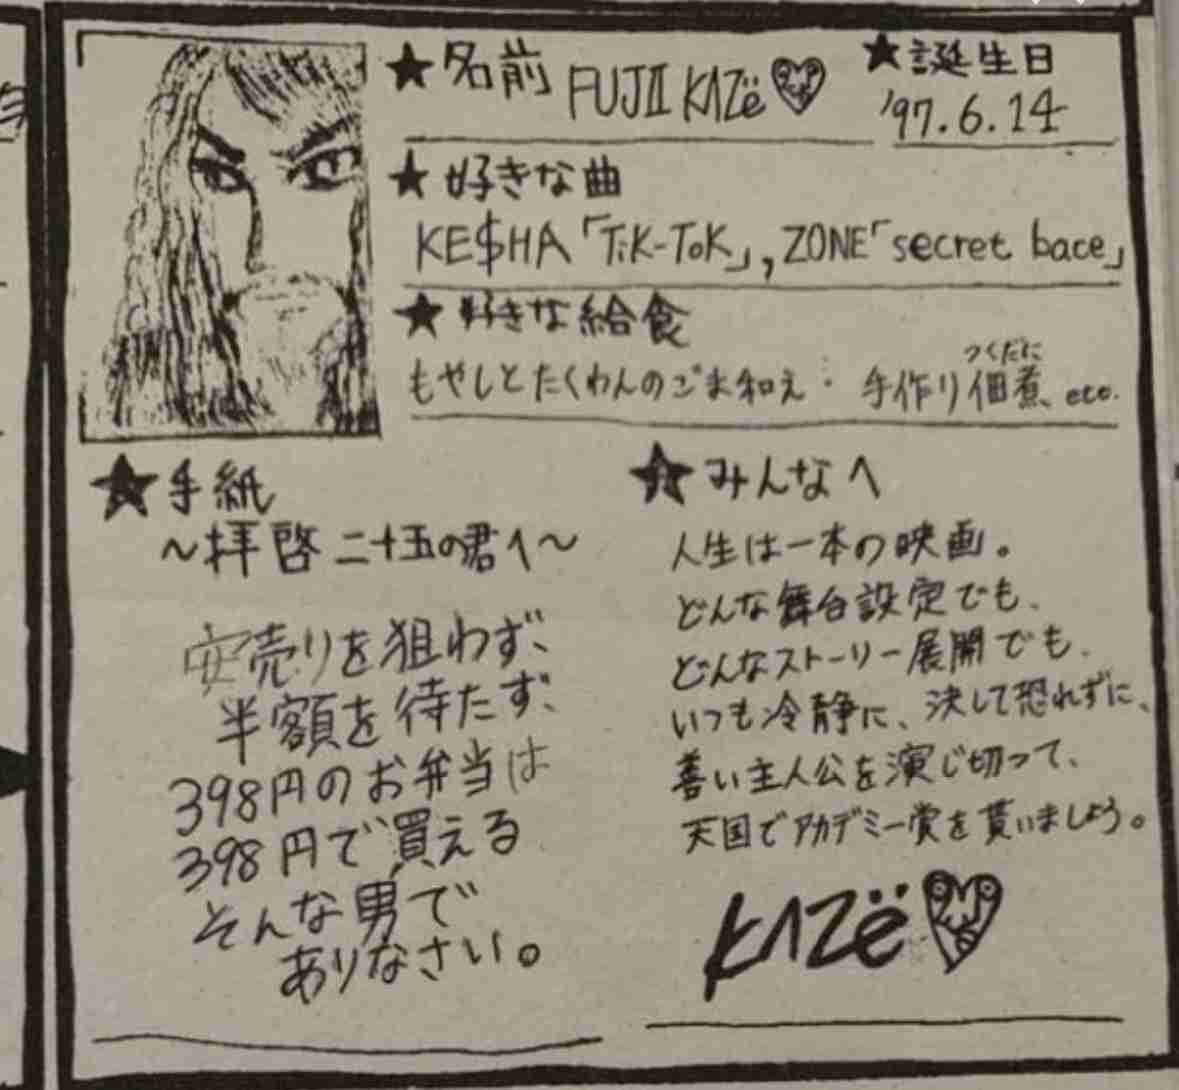 ★名前 FUJII KAZë
★誕生日
'97.6.14
★好きな曲
KE$HA「TiK-ToK」, ZONE「secret bace」
★好きな給食
つくだに
もやしとたくわんのごま和え・手作り佃煮、etc.
★手紙
〜拝啓 二十五の君へ〜
安売りを狙わず、
半額を待たず、
398円のお弁当は
398円で買える
そんな男で
ありなさい。
★みんなへ
人生は一本の映画。
どんな舞台設定でも、
どんなストーリー展開でも、
いつも冷静に、決して恐れずに、
善い主人公を演じ切って、
天国でアカデミー賞を貰いましょう。
KAZë